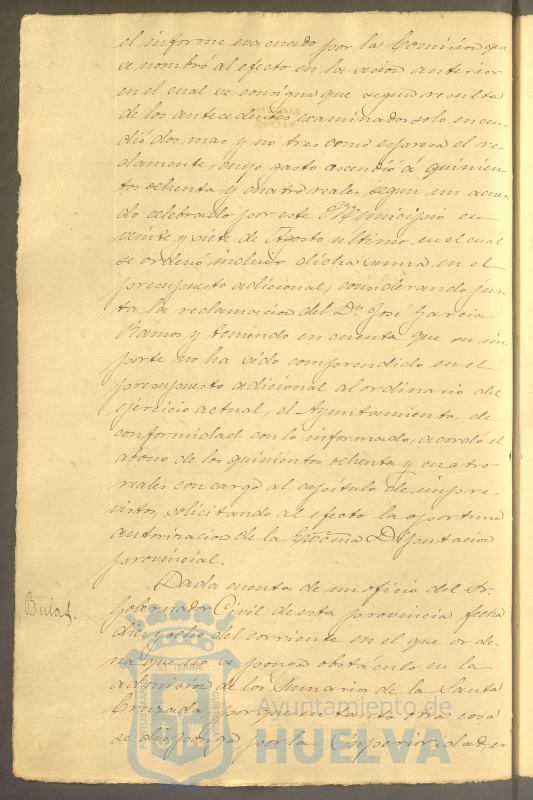 el informe evacuado por la Comision que
se nombró al efecto en la sesion anterior
en el cual se consigna que segun resulta
de los antecedentes examinados solo encen-
dió dos mas y no tres como espresa el re-
clamente, cuyo gasto ascendió á quinien-
tos ochenta y cuatro reales, segun un acuer-
do celebrado por este Municipio en
veinte y siete de Agosto último, en el cuál
se ordenó incluir dicha suma en el
presupuesto adicional; considerando jus-
ta la reclamacion del Dn. José Garcia
Ramos y teniendo en cuenta que su im-
porte no ha sido comprendido en el
presupuesto adicional al ordinario del
ejercicio actual, el Ayuntamiento, de
conformidad con lo informado, acordó el
abono de los quinientos ochenta y cuatro
reales con cargo al capitulo de impre-
vistos, solicitando al efecto la oportuna
autorizacion de la Excma Diputacion
provincial.
Bulas.
Dada cuenta de un oficio del Sr.
Gobernador Civil de esta provincia fecha
diez y ocho del corriente en el que orde-
na que no se ponga obstáculo en la
admision de los Sumarios de la Santa
Cruzada, porque en tanto otra cosa
se disponga por la Superioridad, es
Ayuntamiento de
HUELVA